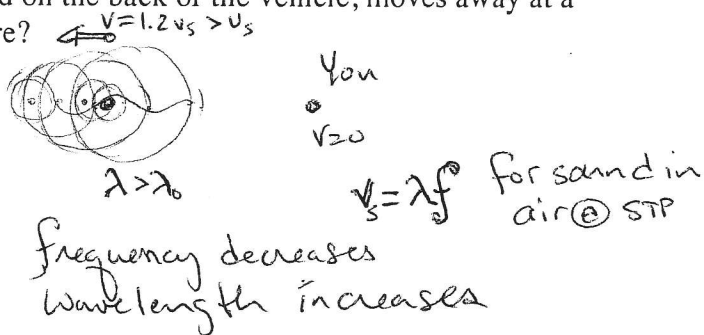 d on the back of the vehicle, moves away at a
re? V=1.2 vs > vs
You
V=0
λ>λ₀
vs=λf for sound in
air@ STP
frequency decreases
wavelength increases